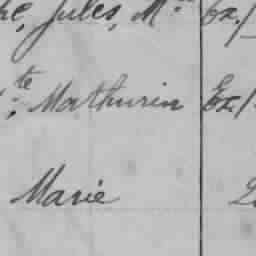 Jules, M.
te, Mathurin Ex/
Marie